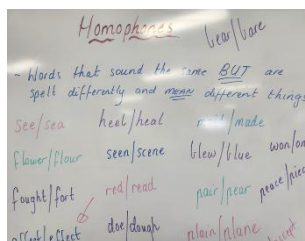 Homophones
bear/bare
- Words that sound the same BUT are
spelt differently and MEAN different things
See/sea heel/heal /made
flower/flour seen/scene blew/blue won/
fought/fort red/read pair/pear peace/
affect/effect doe/dough plain/plane